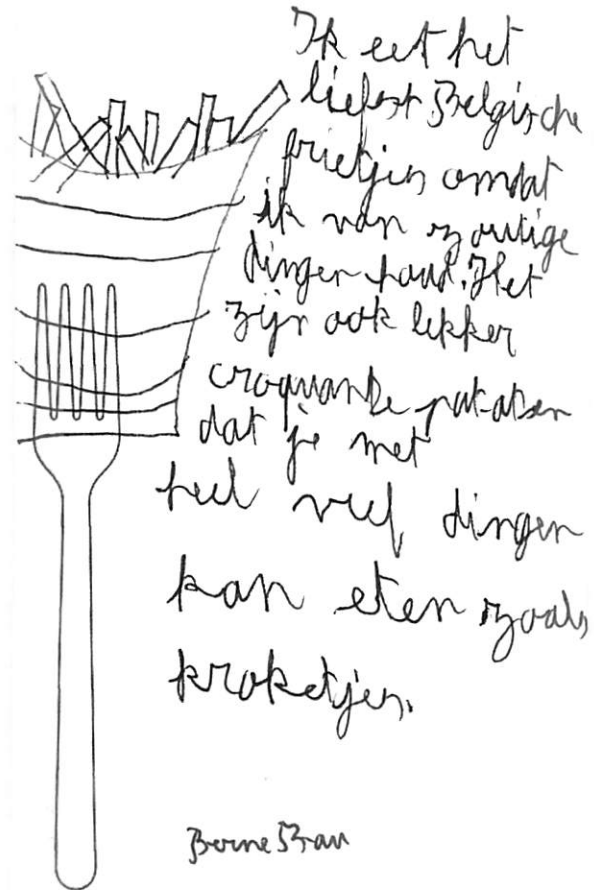 Ik eet het
liefst Belgische
frietjes omdat
ik van zoutige
dingen houd. Het
zijn ook lekker
croquante patatsen
dat je met
heel veel dingen
kan eten zoals
kroketjes.